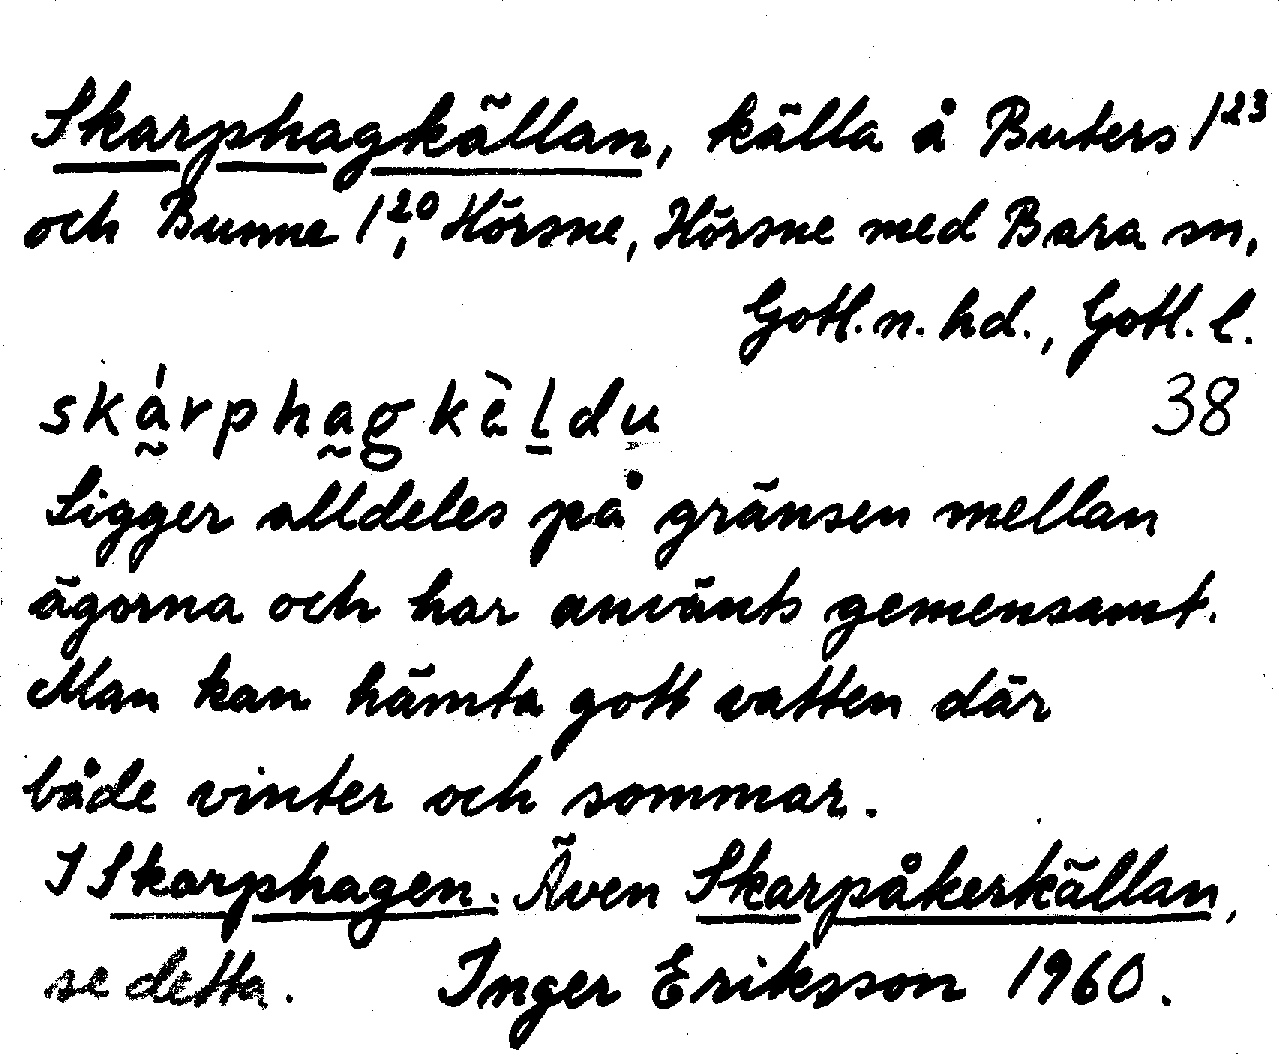 Skarphagkällan, källa å Buters 1²³
och Bunne 1²⁰, Hörsne, Hörsne med Bara sn,
Gotl. n. hd., Gotl. l.
skárphagkèldu
38
Ligger alldeles på gränsen mellan
ägorna och har använts gemensamt.
Man kan hämta gott vatten där
både vinter och sommar.
I Skarphagen. Även Skarpåkerskällan,
se detta. Inger Eriksson 1960.